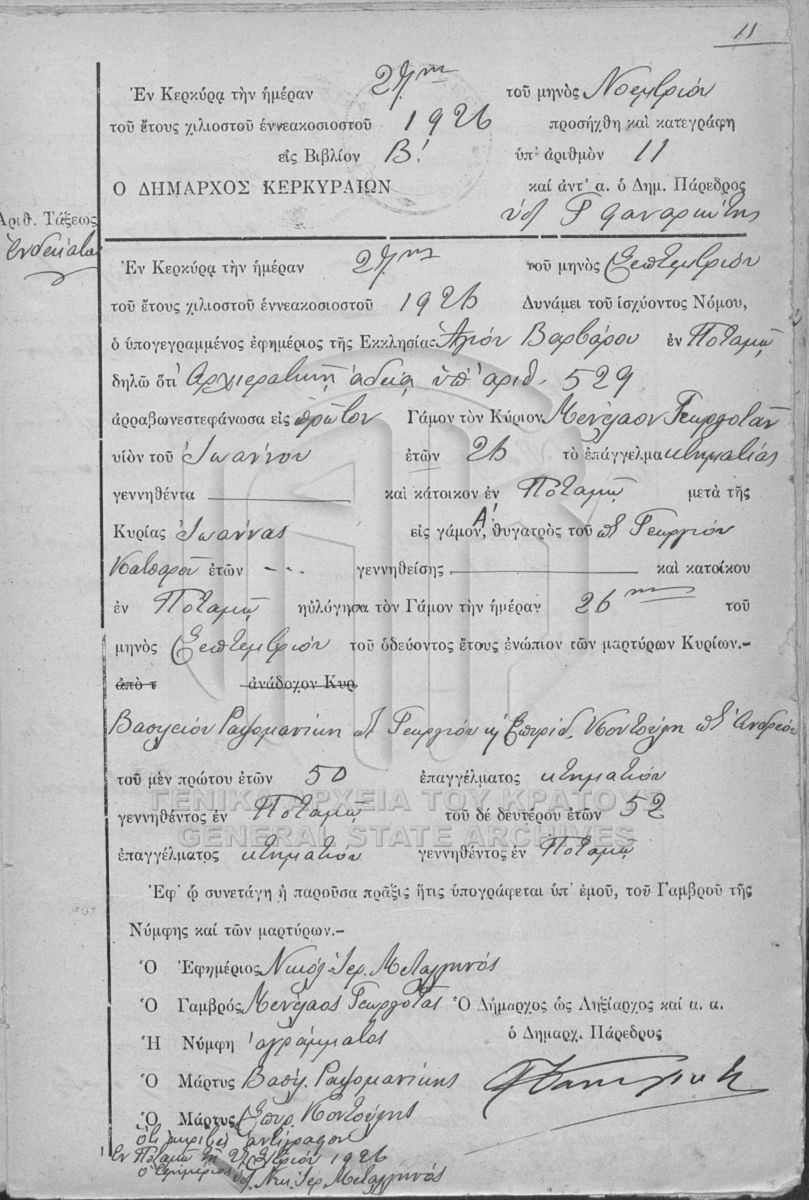 11
Ἐν Κερκύρᾳ τὴν ἡμέραν 27ην τοῦ μηνὸς Νοεμβρίου
τοῦ ἔτους χιλιοστοῦ ἐννεακοσιοστοῦ 1926 προσήχθη καὶ κατεγράφη
εἰς Βιβλίον Β! ὑπ' ἀριθμὸν 11
Ο ΔΗΜΑΡΧΟΣ ΚΕΡΚΥΡΑΙΩΝ καί ἀντ' α. ὁ Δημ. Πάρεδρος
Ἀριθ. Τάξεως
Ἑνδεκάτη
Ἐν Κερκύρᾳ τὴν ἡμέραν 27ην τοῦ μηνὸς Σεπτεμβρίου
τοῦ ἔτους χιλιοστοῦ ἐννεακοσιοστοῦ 1926 Δυνάμει τοῦ ἰσχύοντος Νόμου,
ὁ ὑπογεγραμμένος ἐφημέριος τῆς Εκκλησίας Ἁγίου Βαρβάρου ἐν Ποταμῷ
δηλῶ ὅτι Ἀρχιερατικῇ ἀδείᾳ ὑπ' ἀριθ. 529
ἀρραβωνεστεφάνωσα εἰς πρῶτον Γάμον τὸν Κύριον Μενέλαον Γεωργοτᾶν
υἱὸν τοῦ Ἰωάννου ἐτῶν 26 τὸ ἐπάγγελμα κτηματίας
γεννηθέντα καὶ κάτοικον ἐν Ποταμῷ μετὰ τῆς
Κυρίας Ἰωάννας εἰς γάμον Α!, θυγατρὸς τοῦ ποτ Γεωργίου
ἐτῶν --- γεννηθείσης καὶ κατοίκου
ἐν Ποταμῷ ηὐλόγησα τὸν Γάμον τὴν ἡμέραν 26ην τοῦ
μηνὸς Σεπτεμβρίου τοῦ ὁδεύοντος ἔτους ἐνώπιον τῶν μαρτύρων Κυρίων.-
ἀπὸ τ ἀνάδοχον Κυρ
Βασιλείου Ραψομανίκη ποτ Γεωργίου κ Σπυρίδ. Κοντούλη ποτ Ἀνδρέου
τοῦ μὲν πρώτου ἐτῶν 50 ἐπαγγέλματος κτηματίου
γεννηθέντος ἐν Ποταμῷ τοῦ δέ δευτέρου ἐτῶν 52
ἐπαγγέλματος κτηματίου γεννηθέντος ἐν Ποταμῷ
ΓΕΝΙΚΑ ΑΡΧΕΙΑ ΤΟΥ ΚΡΑΤΟΥΣ
GENERAL STATE ARCHIVES
Ἐφ' ᾧ συνετάγη ἡ παροῦσα πρᾶξις ἥτις ὑπογράφεται ὑπ' ἐμοῦ, τοῦ Γαμβροῦ τῆς
Νύμφης καί τῶν μαρτύρων.-
Ὁ Ἐφημέριος Νικόλ. Ἱερ. Μεταλληνός
Ὁ Γαμβρός Μενέλαος Γεωργοτᾶς Ὁ Δήμαρχος ὡς Ληξίαρχος καί α. α.
Ἡ Νύμφη ἀγράμματος ὁ Δημαρχ. Πάρεδρος
Ὁ Μάρτυς Βασίλ. Ραψομανίκης
Ὁ Μάρτυς Σπυρ. Κοντούλης
ὅτι ἀκριβές ἀντίγραφον
Ἐν Ποταμῷ τῇ 1926
ὁ Ἐφημέριος Νικ. Ἱερ. Μεταλληνός